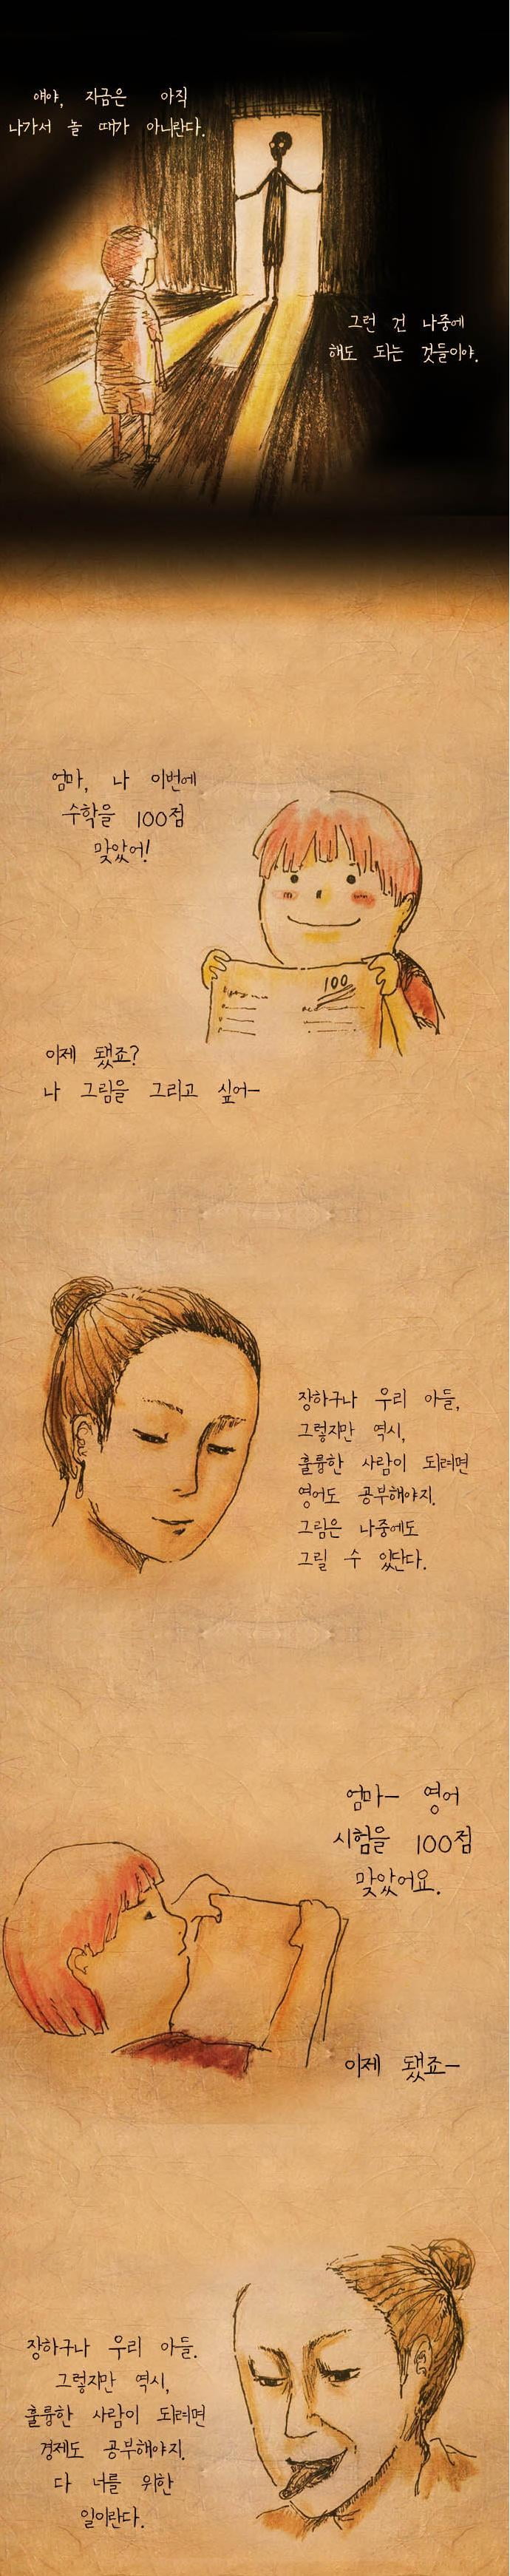 얘야, 지금은 아직
나가서 놀 때가 아니란다.
그런 건 나중에
해도 되는 것들이야.
엄마, 나 이번에
수학을 100점
맞았어!
100
이제 됐죠?
나 그림을 그리고 싶어—
장하구나 우리 아들,
그렇지만 역시,
훌륭한 사람이 되려면
영어도 공부해야지.
그림은 나중에도
그릴 수 있단다.
엄마— 영어
시험을 100점
맞았어요.
이제 됐죠—
장하구나 우리 아들.
그렇지만 역시,
훌륭한 사람이 되려면
경제도 공부해야지.
다 너를 위한
일이란다.